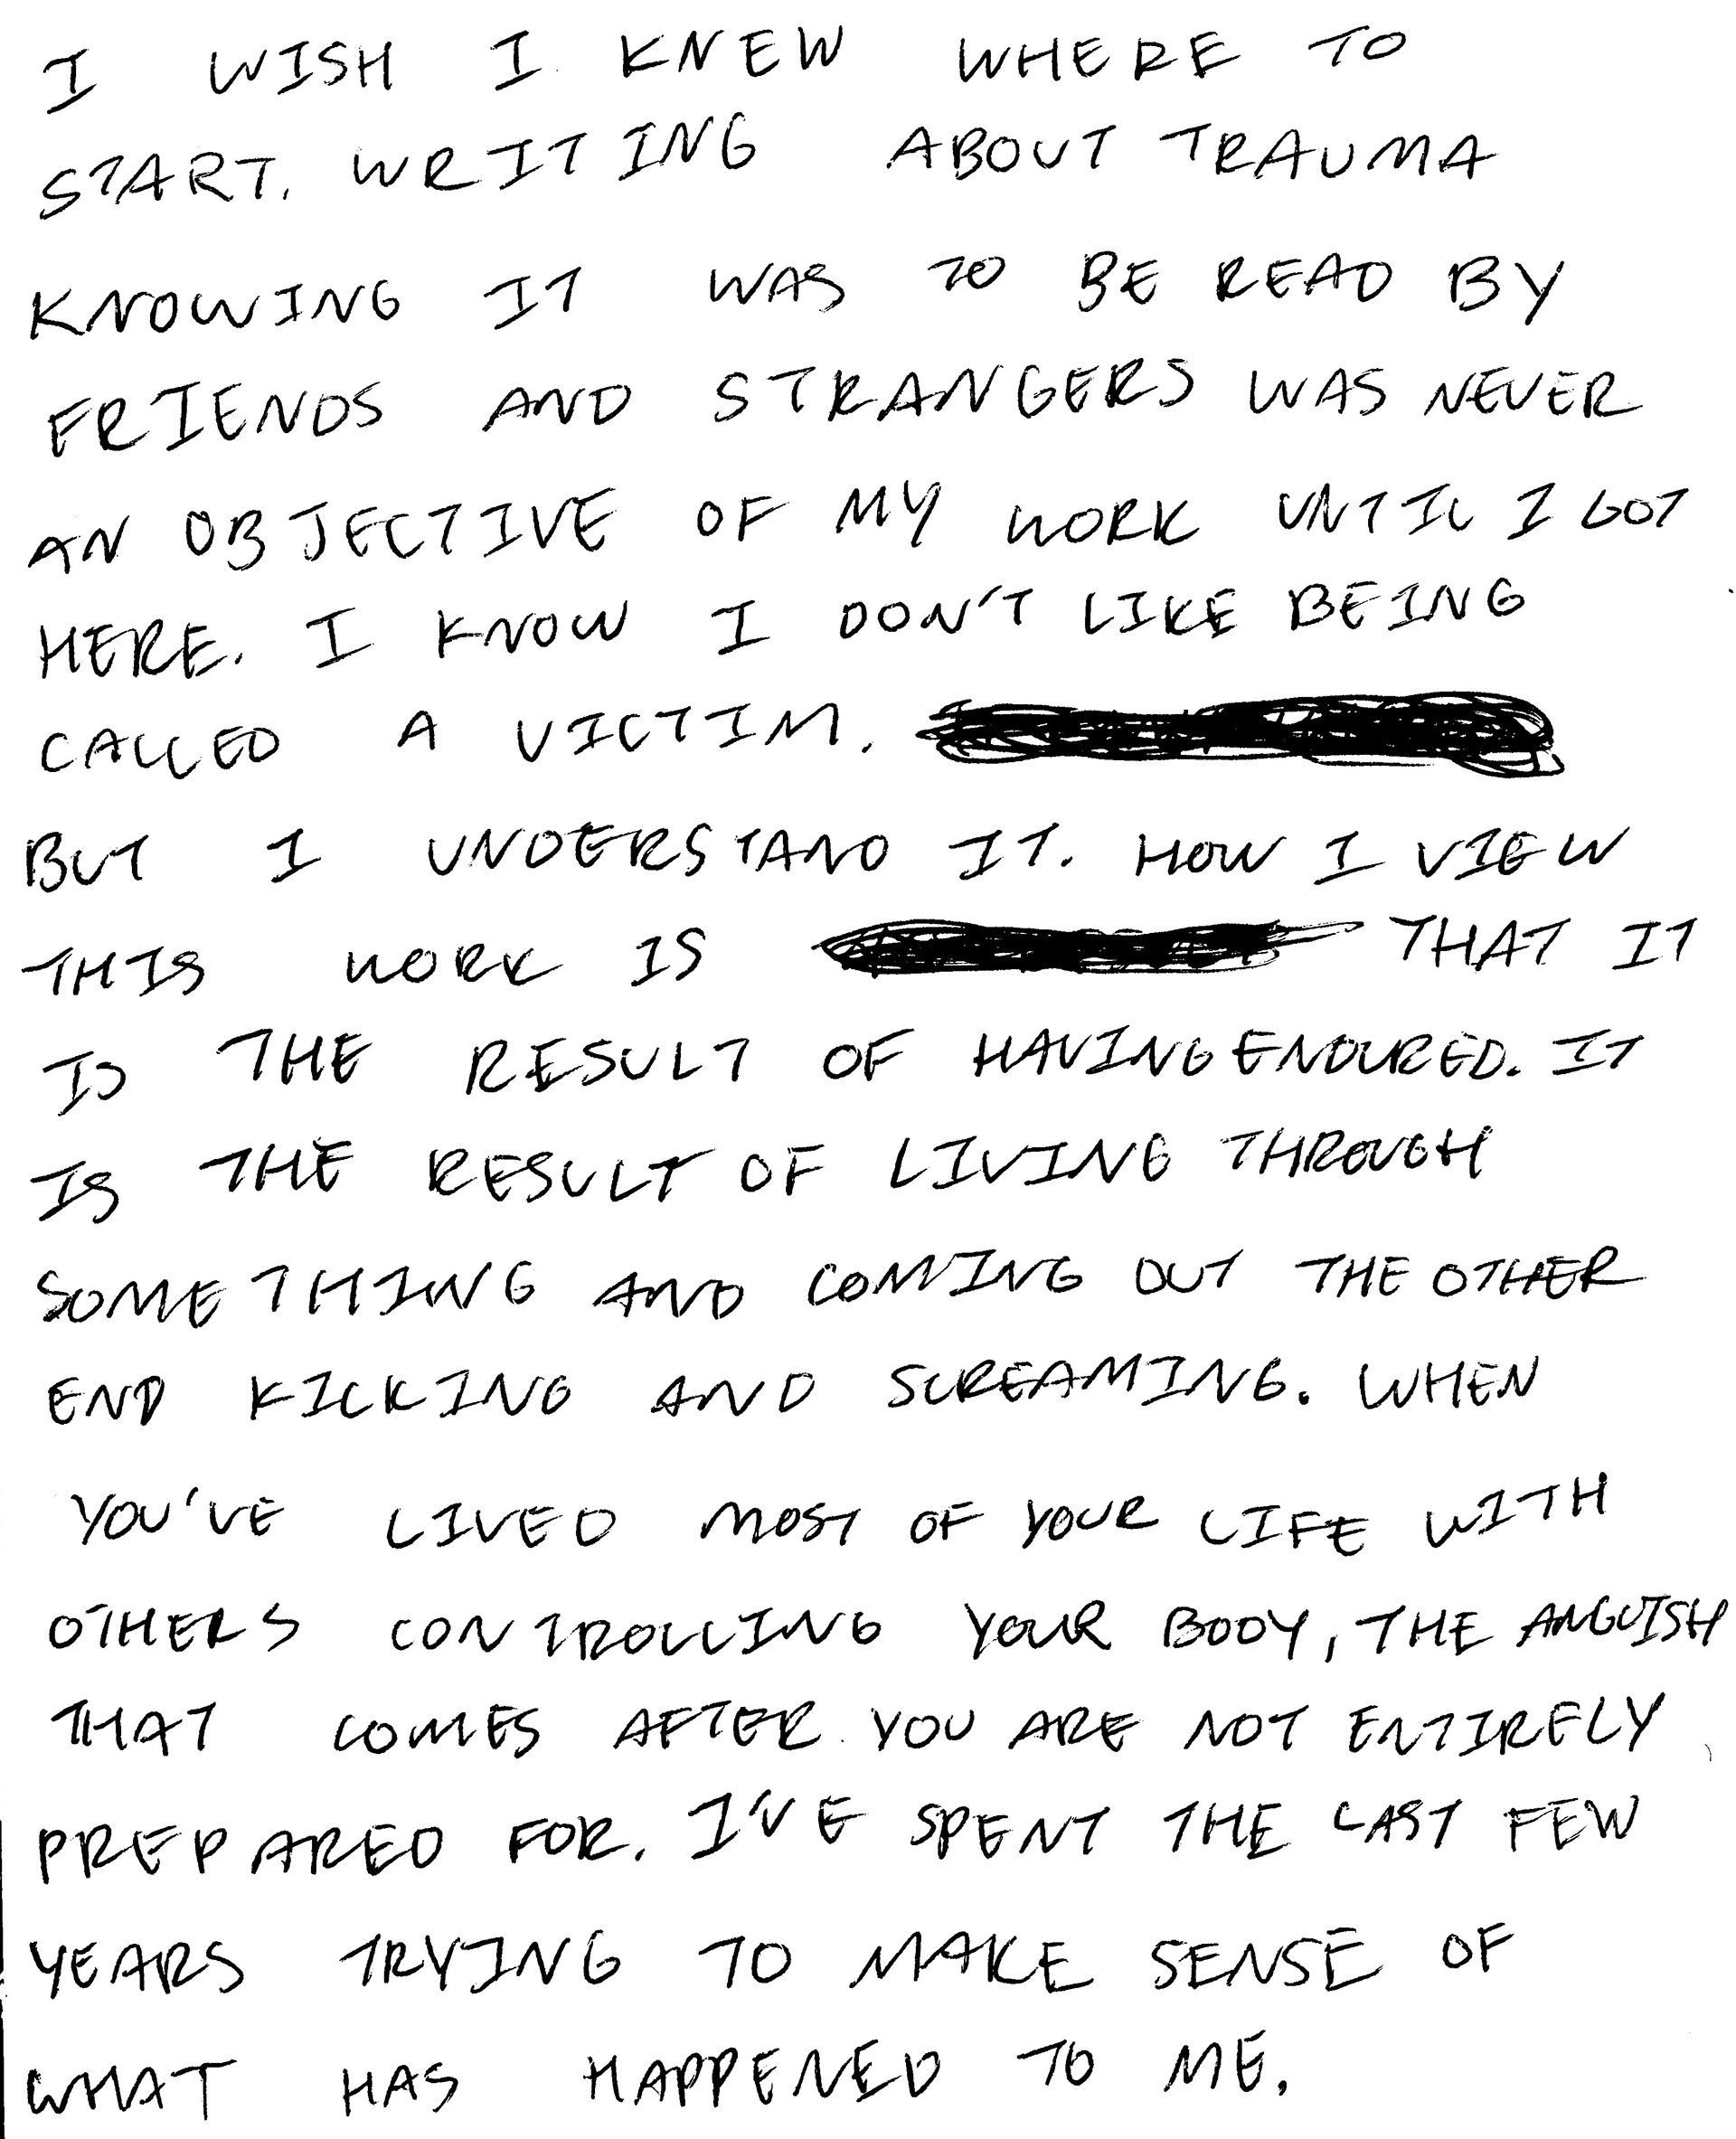 I WISH I KNEW WHERE TO
START. WRITING ABOUT TRAUMA
KNOWING IT WAS TO BE READ BY
FRIENDS AND STRANGERS WAS NEVER
AN OBJECTIVE OF MY WORK UNTIL I GOT
HERE. I KNOW I DON'T LIKE BEING
CALLED A VICTIM.
BUT I UNDERSTAND IT. HOW I VIEW
THIS WORK IS THAT IT
IS THE RESULT OF HAVING ENDURED. IT
IS THE RESULT OF LIVING THROUGH
SOMETHING AND COMING OUT THE OTHER
END KICKING AND SCREAMING. WHEN
YOU'VE LIVED MOST OF YOUR LIFE WITH
OTHERS CONTROLLING YOUR BODY, THE ANGUISH
THAT COMES AFTER YOU ARE NOT ENTIRELY
PREPARED FOR. I'VE SPENT THE LAST FEW
YEARS TRYING TO MAKE SENSE OF
WHAT HAS HAPPENED TO ME.